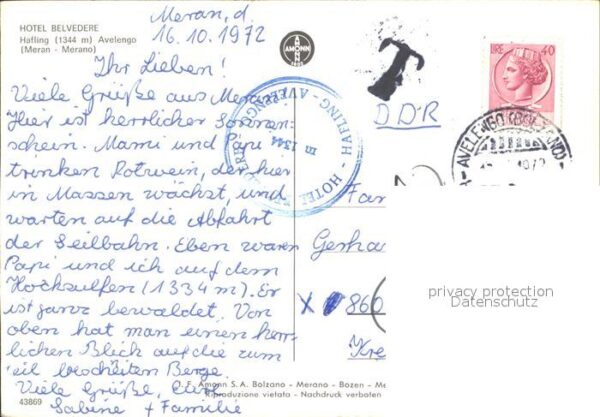 HOTEL BELVEDERE
Hafling (1344 m) Avelengo
(Meran - Merano)
Meran, d.
16.10.1972
Ihr Lieben!
Viele Grüße aus Meran
Hier ist herrlicher Sonnen-
schein. Mami und Papi
trinken Rotwein, der hier
in Massen wächst, und
warten auf die Abfahrt
der Seilbahn. Eben waren
Papi und ich auf dem
(1334 m). Er
ist ganz bewaldet. Von
oben hat man einen herr-
lichen Blick auf die zum
Teil beschneiten Berge.
Viele Grüße, Eure
Sabine + Familie
43869
AMONN
HAFLING - AVELENGO
m 1344
HOTEL
T
DDR
LIRE 40
AVELENGO (BOLZANO)
Fam
Gerha
X 860
Kre
privacy protection
Datenschutz
F. Amonn S.A. Bolzano - Merano - Bozen - Me
Riproduzione vietata - Nachdruck verboten